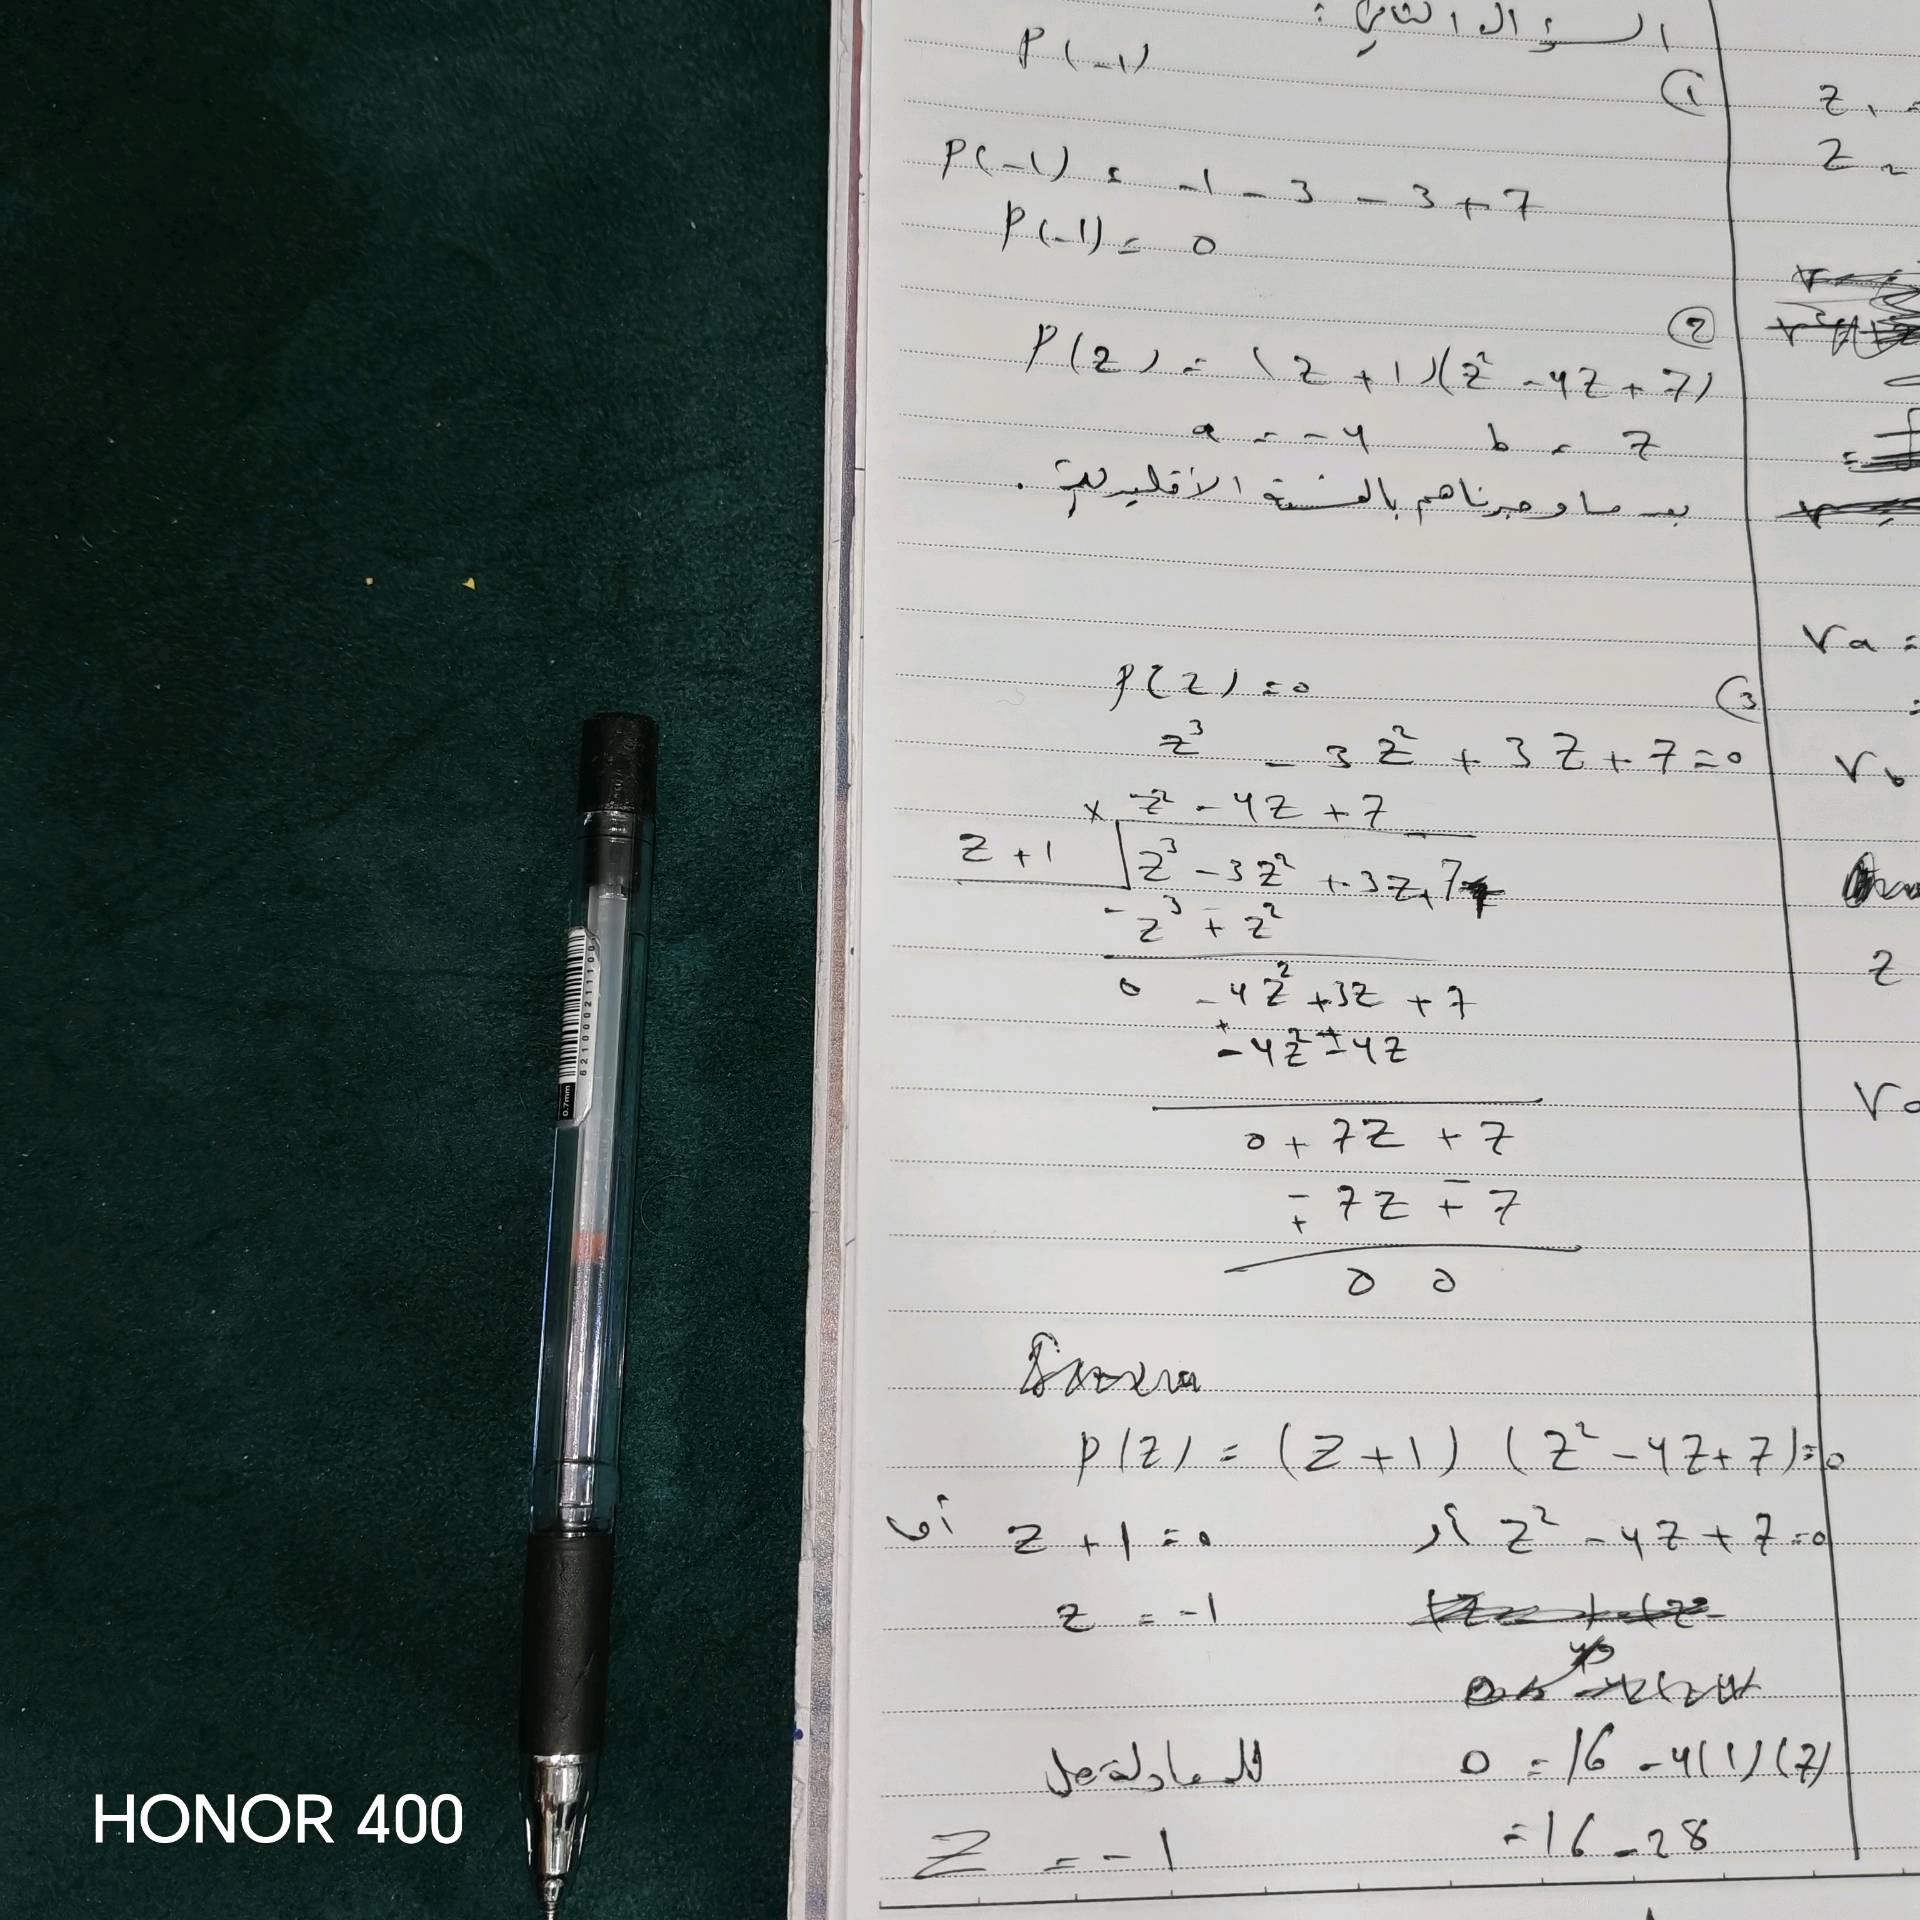 السؤال الثاني :
①
P(-1)
P(-1) = -1 - 3 - 3 + 7
P(-1) = 0
②
P(z) = (z + 1)(z² - 4z + 7)
a = -4 b = 7
بعد ما وجدناهم بالقسمة الأقليدية .
③
P(z) = 0
z³ - 3z² + 3z + 7 = 0
x z² - 4z + 7
z + 1 z³ - 3z² + 3z + 7
- z³ + z²
0 - 4z² + 3z + 7
- 4z² - 4z
0 + 7z + 7
7z + 7
0 0
P(z) = (z + 1) (z² - 4z + 7) = 0
أما z + 1 = 0 أو z² - 4z + 7 = 0
z = -1
للمعادلة حل 0 = 16 - 4(1)(7)
z = -1 = 16 - 28
z₁ =
z₂
ra =
=
rb
z
HONOR 400
0.7mm
6210002111100